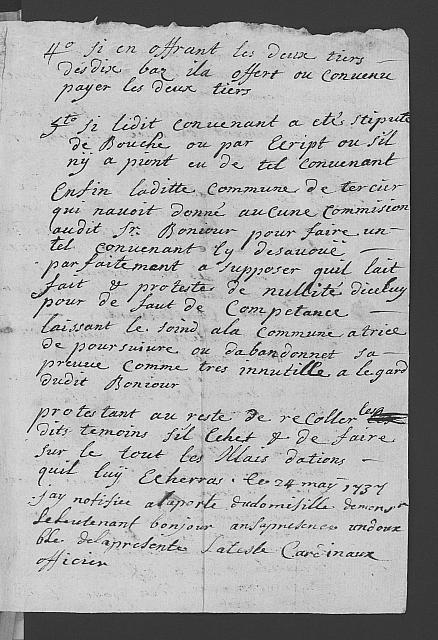 4º si en offrant les deux tiers
des dix baz ila offert ou convenu
payer les deux tiers
5to si ledit convenant a etés stipule
de Bouche ou par Ecript ou sil
nÿ a pïont eu de tel convenant
Enfin laditte Commune de tercier
qui navoit donné aucune Commision
audit Sr. Bonjour pour faire un
tel convenant lÿ desavouë
parfaitement a supposer quil lait
fait & proteste de nullité diceluy
pour de faut de Competance
laissant le soind ala Commune atrice
de poursuivre ou dabandonnet sa
preuve comme tres innutille a legard
dudit Bonjour
protestant au reste de recoller les
dits temoins sil Echet & de faire
sur le tout les Mais dations
quil luÿ Echerras. Ce 24 maÿ 1737
jay notifiée alaporte dudomisille demonsr
Leleutenant bonjour ansapresence un doux
ble delapresente Lateste Cardinaux
officier